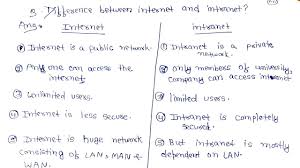 3. Difference between internet and intranet?
Ans: Internet
① Internet is a public network.
② Any one can access the internet.
③ Unlimited users.
④ Internet is less secure.
⑤ Internet is huge network
consisting of LAN, MAN &
WAN.
Intranet
① Intranet is a private
network.
② only members of university,
company can access intranet
③ limited users.
④ Intranet is completely
secured.
⑤ But intranet is mostly
dependent on LAN.